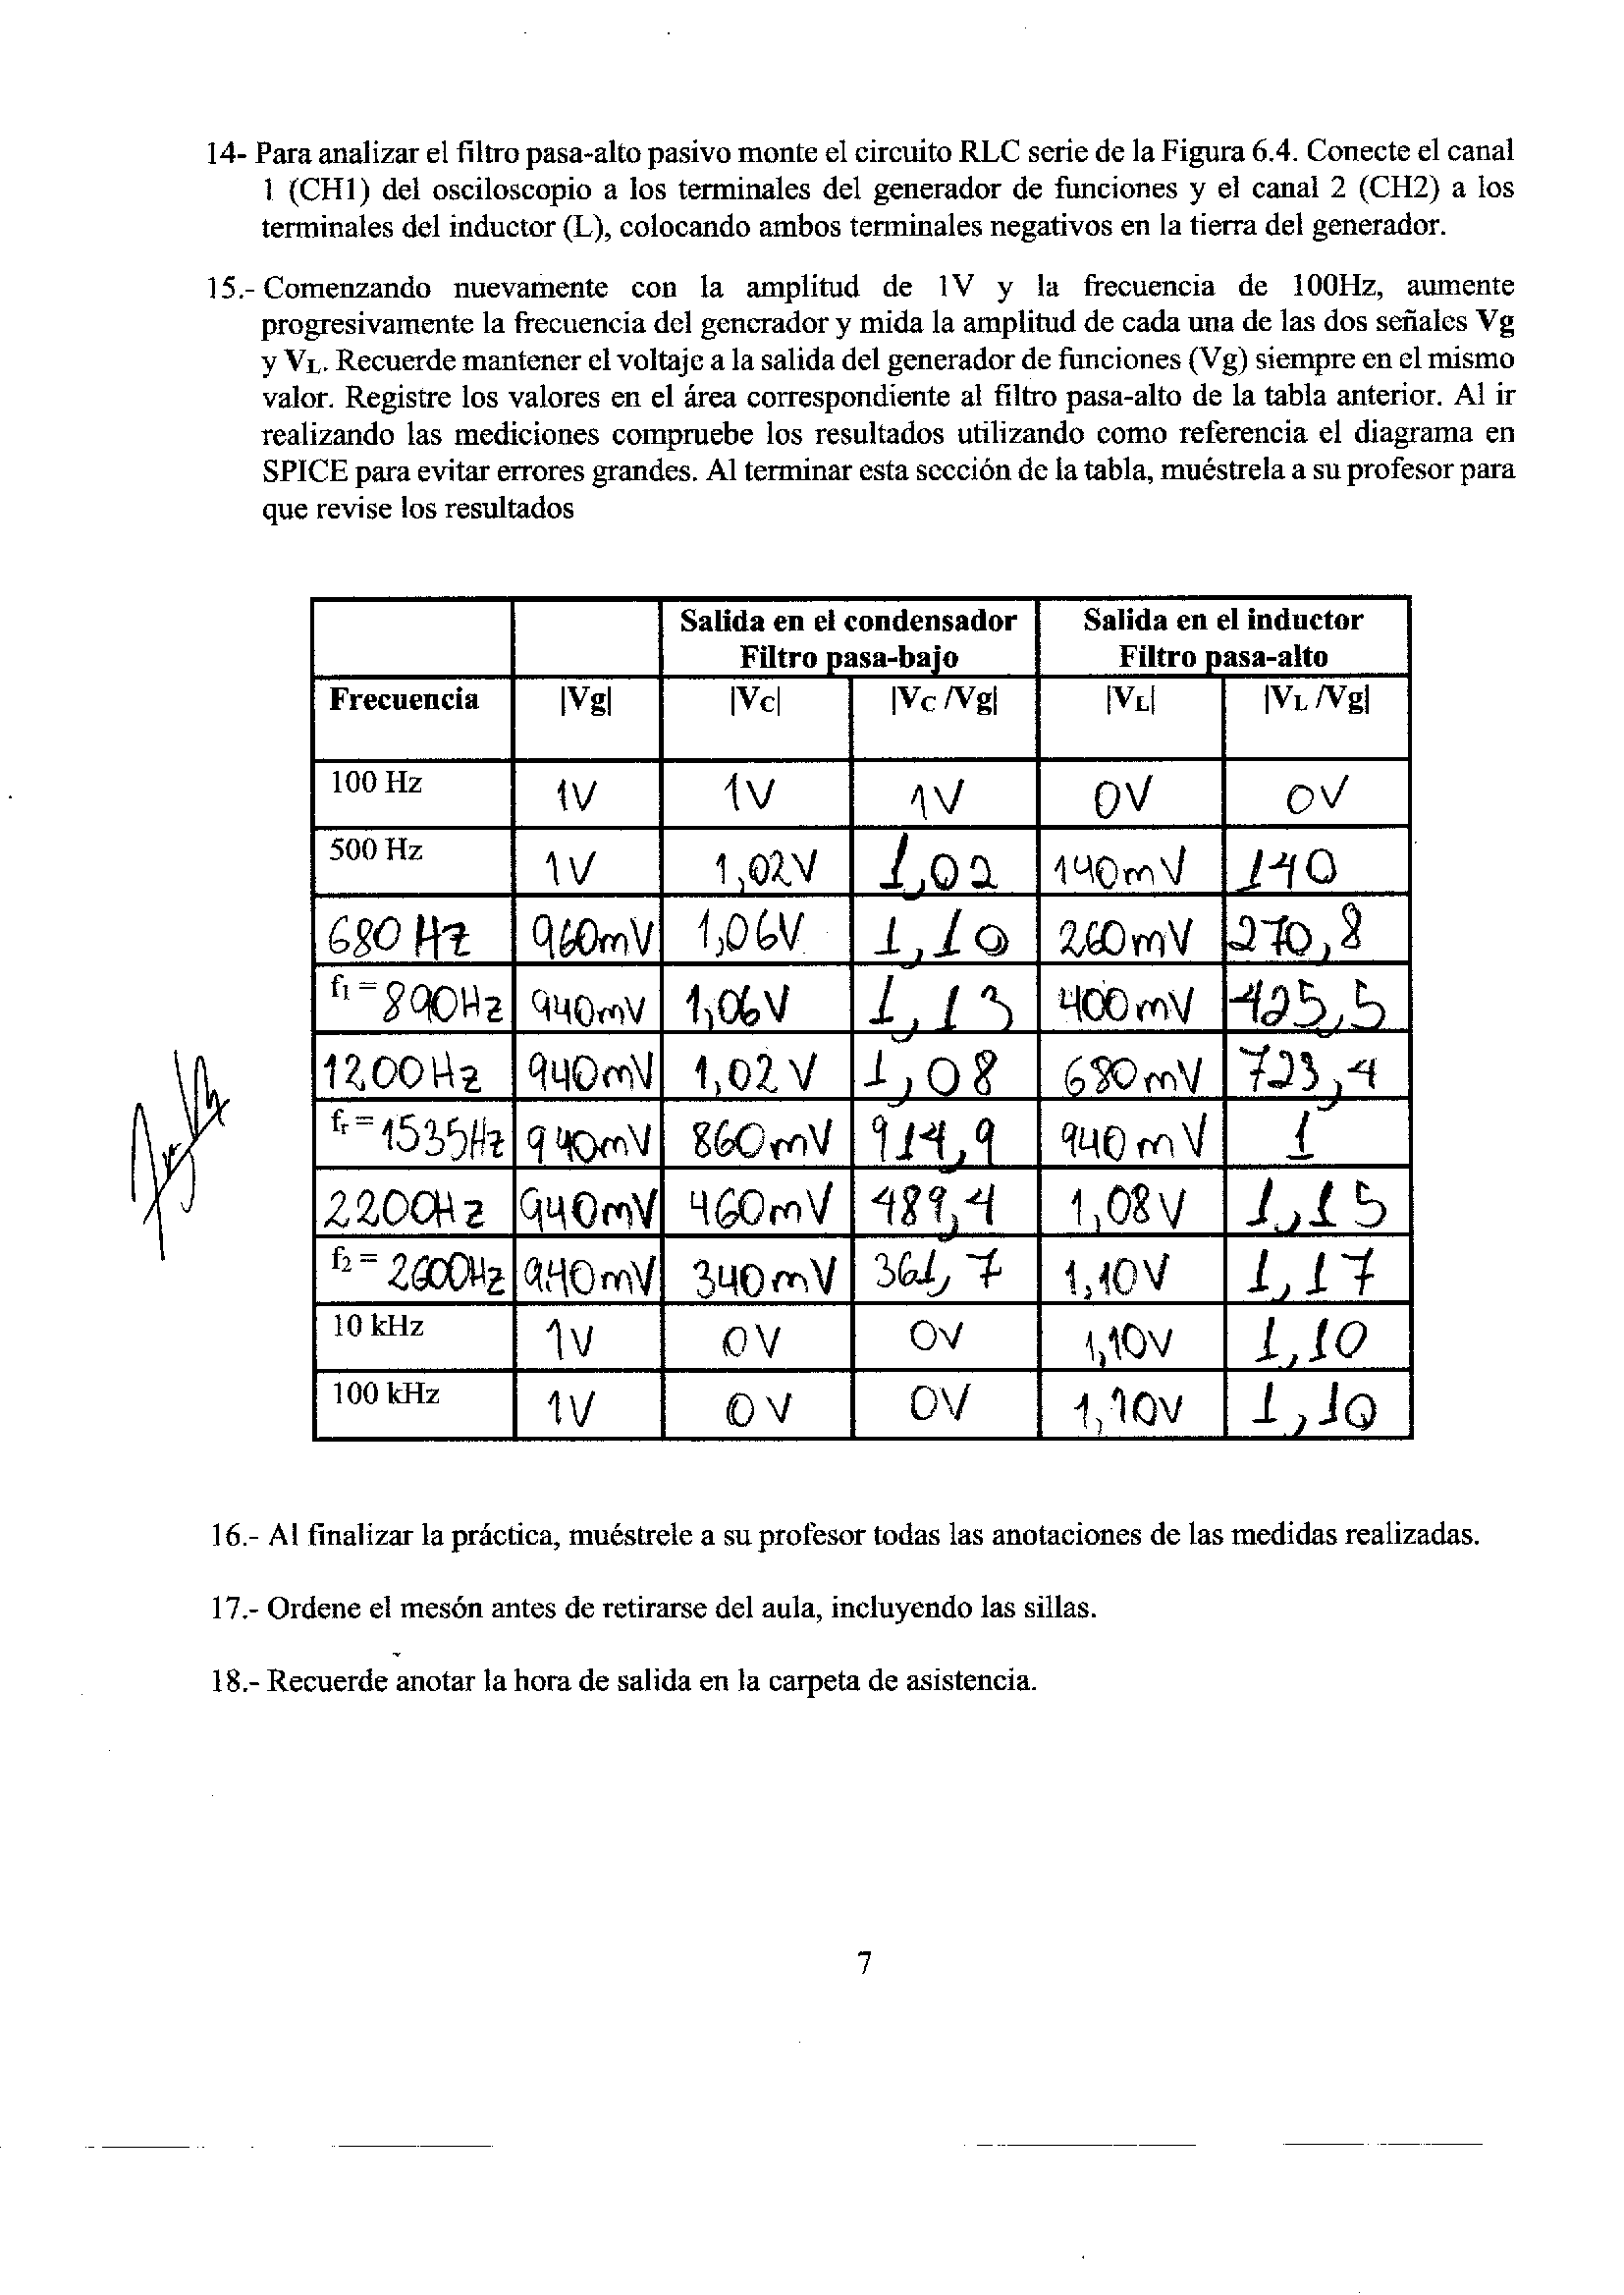 14- Para analizar el filtro pasa-alto pasivo monte el circuito RLC serie de la Figura 6.4. Conecte el canal
1 (CH1) del osciloscopio a los terminales del generador de funciones y el canal 2 (CH2) a los
terminales del inductor (L), colocando ambos terminales negativos en la tierra del generador.
15.- Comenzando nuevamente con la amplitud de 1V y la frecuencia de 100Hz, aumente
progresivamente la frecuencia del generador y mida la amplitud de cada una de las dos señales Vg
y VL. Recuerde mantener el voltaje a la salida del generador de funciones (Vg) siempre en el mismo
valor. Registre los valores en el área correspondiente al filtro pasa-alto de la tabla anterior. Al ir
realizando las mediciones compruebe los resultados utilizando como referencia el diagrama en
SPICE para evitar errores grandes. Al terminar esta sección de la tabla, muéstrela a su profesor para
que revise los resultados
Salida en el condensador Salida en el inductor
Filtro pasa-bajo Filtro pasa-alto
Frecuencia |Vg| |Vc| |Vc /Vg| |VL| |VL /Vg|
100 Hz 1V 1V 1V 0V 0V
500 Hz 1V 1,02V 1,02 140mV 140
680 Hz 960mV 1,06V 1,10 260mV 270,8
f1 = 890Hz 940mV 1,06V 1,13 400mV 425,5
1200Hz 940mV 1,02V 1,08 680mV 723,4
fr = 1535Hz 940mV 860mV 914,9 940mV 1
2200Hz 940mV 460mV 489,4 1,08V 1,15
f2 = 2600Hz 940mV 340mV 361,7 1,10V 1,17
10 kHz 1V 0V 0V 1,10V 1,10
100 kHz 1V 0V 0V 1,10V 1,10
16.- Al finalizar la práctica, muéstrele a su profesor todas las anotaciones de las medidas realizadas.
17.- Ordene el mesón antes de retirarse del aula, incluyendo las sillas.
18.- Recuerde anotar la hora de salida en la carpeta de asistencia.
7